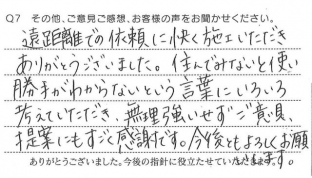 Q7 その他、ご意見ご感想、お客様の声をお聞かせください。
遠距離での依頼に快く施工いただき
ありがとうございました。住んでみないと使い
勝手がわからないという言葉にいろいろ
考えていただき、無理強いせずご意見、
提案にもすごく感謝です。今後ともよろしくお願
いします。
ありがとうございました。今後の指針に役立たせていただきます。